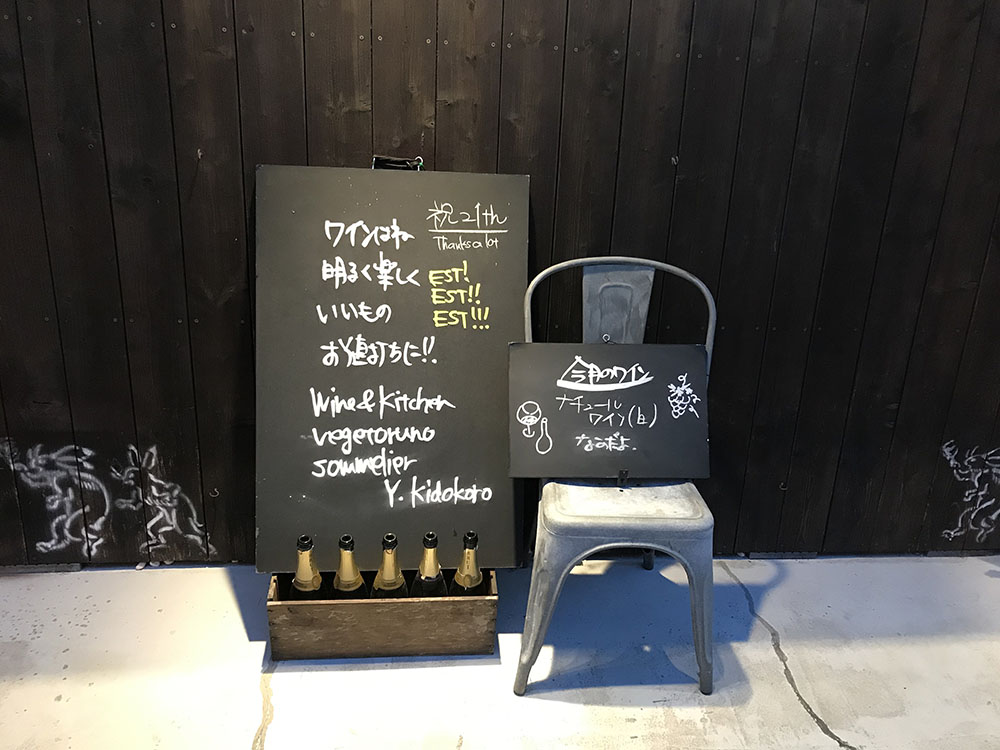 ワインはね
明るく楽しく
いいもの
お値打ちに!!
Wine & Kitchen
vegetoruno
sommelier
Y. Kidokoro
祝21th
Thanks a lot
EST!
EST!!
EST!!!
今月のワイン
ナチュール
ワイン(白)
なのだよ.